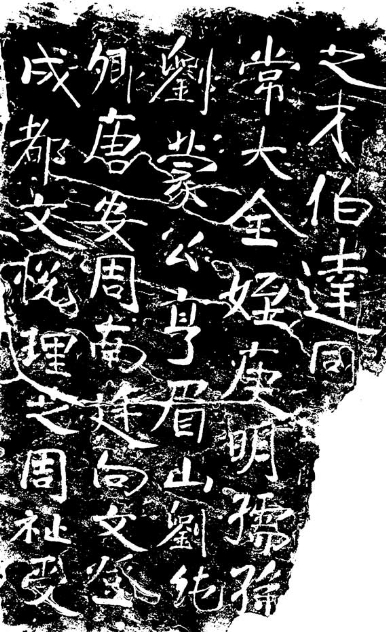 之才伯達同
常大全姪庚明孺孫
劉蒙公亨眉山劉純
卿唐安周南向文
成都文悅理之周祉受